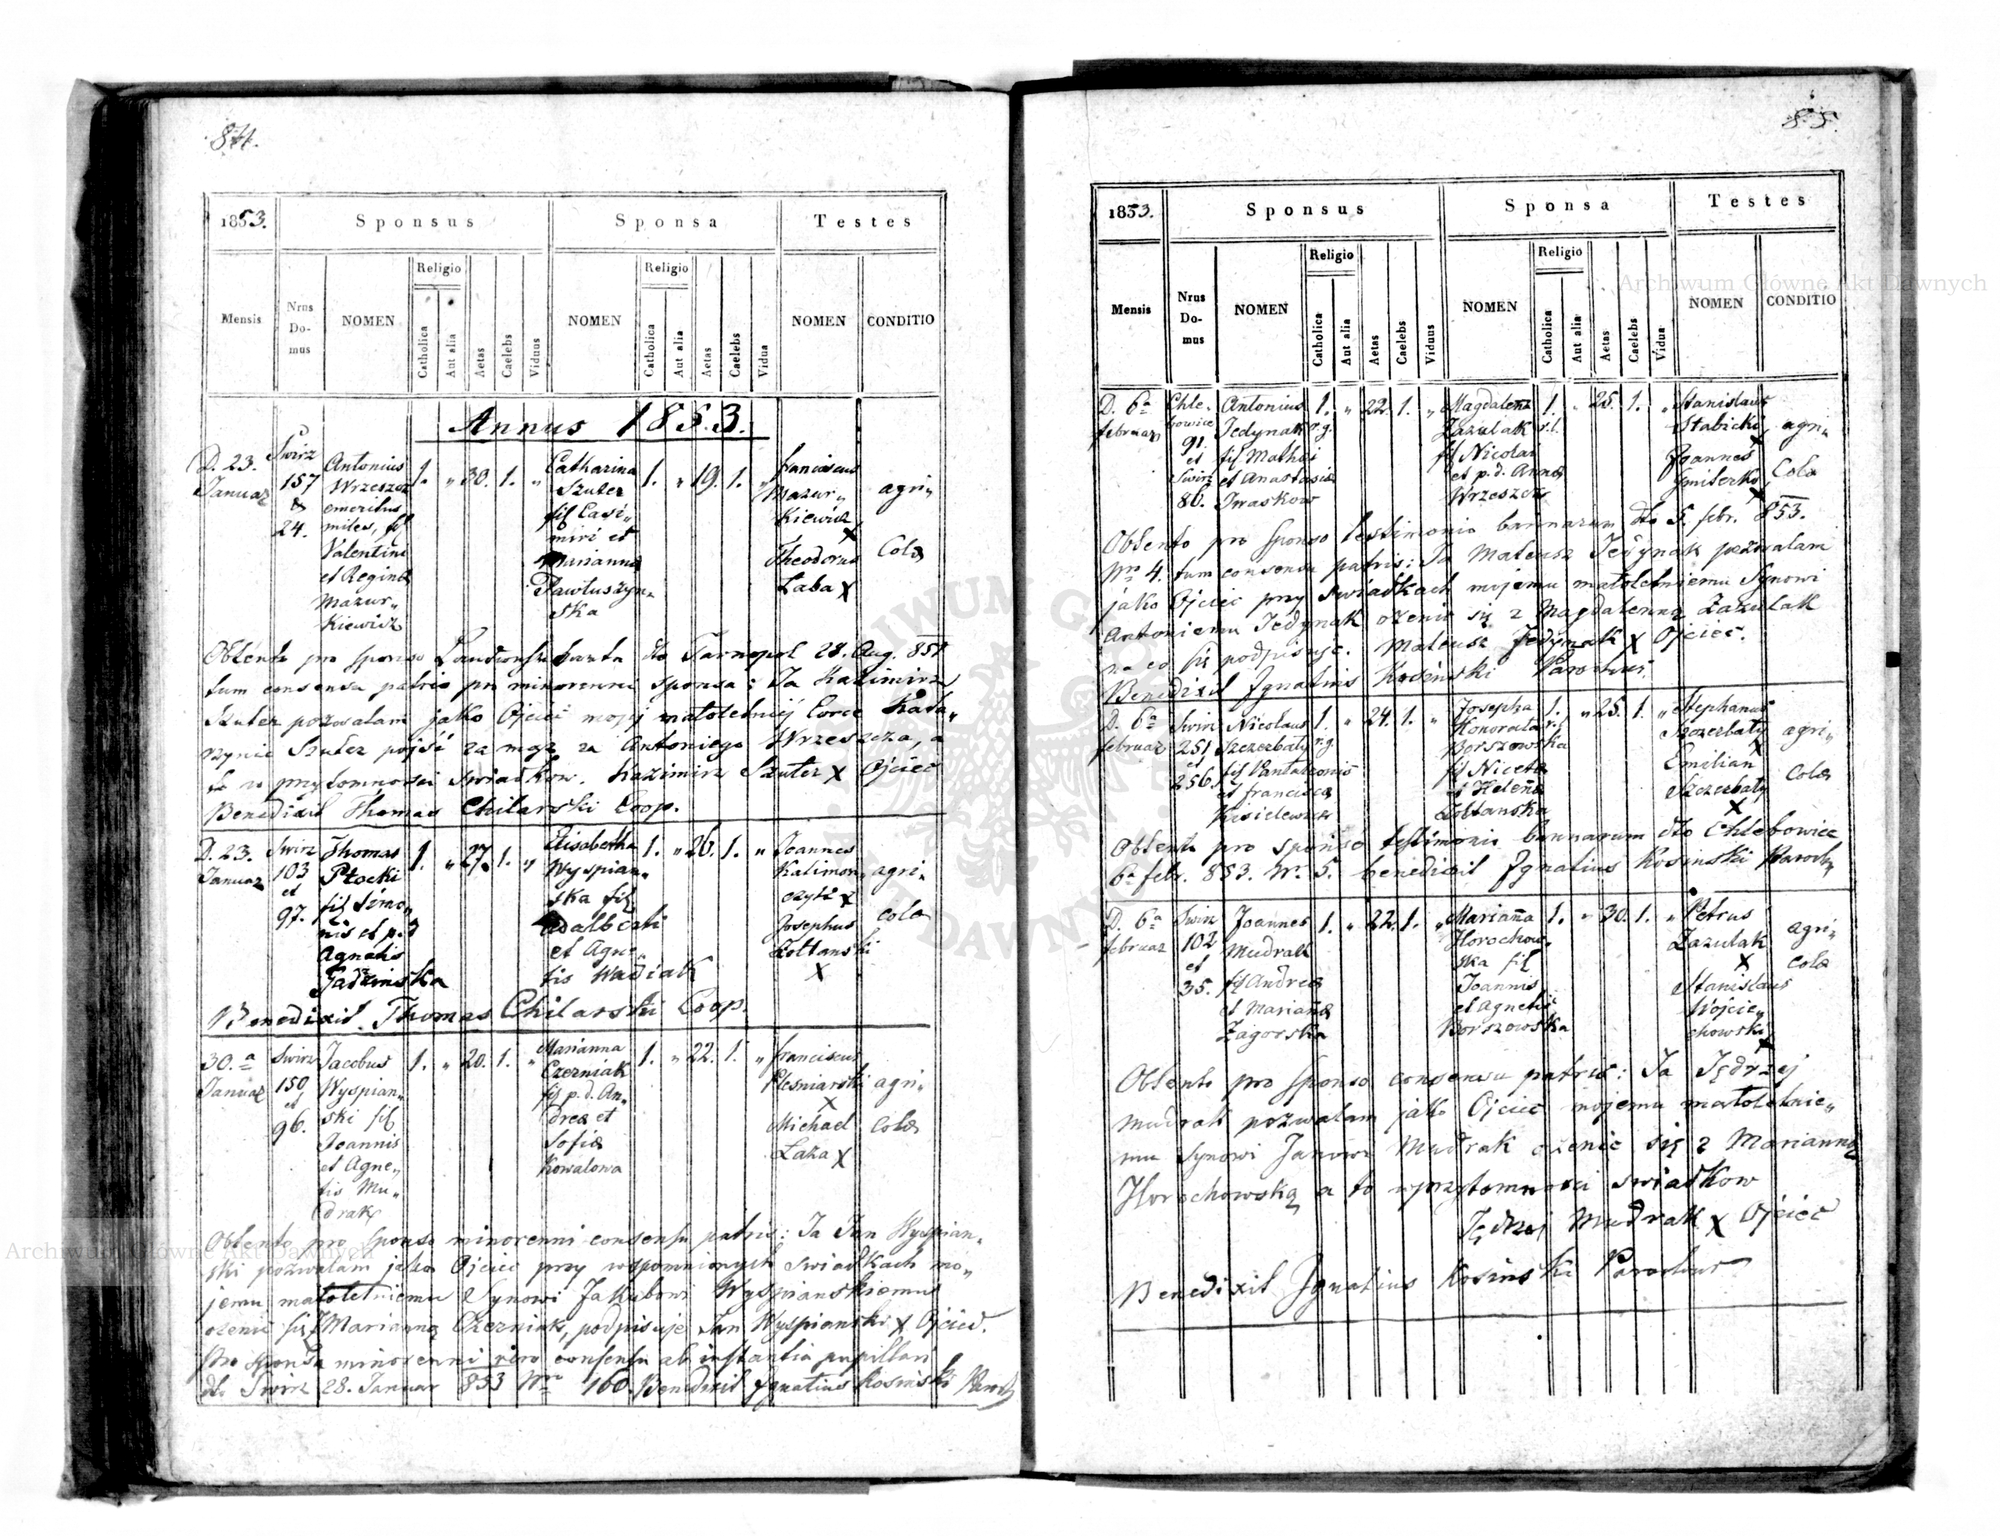 84.
1853.
Sponsus
Sponsa
Testes
Mensis
Nrus Domus
NOMEN
Religio
Catholica
Aut alia
Aetas
Caelebs
Viduus
NOMEN
Religio
Catholica
Aut alia
Aetas
Caelebs
Vidua
NOMEN
CONDITIO
Annus 1853.
D. 23.
Januar
Swirz
157
&
24.
Antonius
Wrzeszcz
emeritus
miles, fil
Valentini
et Reginæ
Mazur„
kiewicz
1. „ 30. 1. „
Catharina
Szuter
fil Casi„
miri et
Marianna
Pawluszyn„
ska
1. „ 19. 1. „
franciscus
Mazur„
kiewicz
x
Theodorus
Łaba x
agri„
colæ
Obtenta pro sponso dto Tarnopol 28. Aug. 851
tum consensu patris pro minorenni sponsa: Ja Kazimirz
Szuter pozwalam jako Ojciec mojej małoletniej Corce Kata„
rzynie Szuter pojść za mąż za Antoniego Wrzeszcza, a
to w przytomności swiadkow. Kazimirz Szuter x Ojciec
Benedixit Thomas Chilarski Coop.
D. 23.
Januar
Swirz
103
et
97.
Thomas
Płocki
fil Simo„
nis et p.d
Agnetis
Jadzinska
1. „ 27. 1. „
Elisabetha
Wyspian„
ska fil
Adalberti
et Agne„
tis Wadiak
1. „ 26. 1. „
Joannes
Kalimon„
x
Josephus
Żołtanski
x
agri„
colæ
Benedixit Thomas Chilarski Coop.
30.a
Januar
Swirz
150
et
96.
Jacobus
Wyspian„
ski fil
Joannis
et Agne„
tis Mu„
drak
1. „ 20. 1. „
Marianna
Czerniak
fil p.d. An„
dreæ et
Sofiæ
Kowalowa
1. „ 22. 1. „
franciscus
Plesniarski
x
Michael
Łaza x
agri„
colæ
Obtento pro sponso minorenni consensu patris: Ja Jan Wyspian„
ski pozwalam jako Ojciec przy wspomnionych swiadkach mo„
jemu małoletniemu Synowi Jakubowi Wyspianskiemu
ożenić się z Marianną Czerniak, podpisuje Jan Wyspianski x Ojciec.
Pro sponsa minorenni vero consensu ab instantia pupillari
dto Swirz 28. Januar 853 Nro 160. Benedixit Ignatius Kosinski Paroch
85.
1853.
Sponsus
Sponsa
Testes
Mensis
Nrus Domus
NOMEN
Religio
Catholica
Aut alia
Aetas
Caelebs
Viduus
NOMEN
Religio
Catholica
Aut alia
Aetas
Caelebs
Vidua
NOMEN
CONDITIO
D. 6a
februar
Chle„
bowice
91.
et
Swirz
80.
Antonius
Jedynak r.g.
fil Mathei
et Anastasiæ
Iwaskow
1. „ 22. 1. „
Magdalena
Zazulak r.l.
fil Nicolai
et p.d. Annæ
Wrzeszcz
1. „ 25. 1. „
Stanislaus
Stabicki
x
Joannes
Gmiterko
x
agri„
colæ
Obtento pro sponso testimonio bannorum dto 5. febr. 853.
Nro 4. tum consensu patris: Ja Mateusz Jedynak pozwalam
jako Ojciec przy swiadkach mojemu małoletniemu Synowi
Antoniemu Jedynak ożenić się z Magdalenną Zazulak
na co się podpisuje. Mateusz Jedynak x Ojciec.
Benedixit Ignatius Kosinski Parochus
D. 6a
februar
Swirz
251
et
256.
Nicolaus
Szczerbaty r.g.
fil Pantaleonis
et franciscæ
Kisielewicz
1. „ 24. 1. „
Josepha
Honorata r.l.
Borszowska
fil Nicetæ
et Helenæ
Żołtanska
1. „ 25. 1. „
Stephanus
Szczerbaty
x
Emilian
Szczerbaty
x
agri„
colæ
Obtento pro sponso testimonio bannorum dto Chlebowice
6a febr. 853. Nr. 5. benedixit Ignatius Kosinski Paroch„
D. 6a
februar
Swirz
102
et
35.
Joannes
Mudrak
fil Andreæ
et Mariannæ
Zagorska
1. „ 22. 1. „
Marianna
Horochow„
ska fil
Joannis
et Agnetis
Borszowska
1. „ 30. 1. „
Petrus
Zazulak
x
Stanislaus
Wojcie„
chowski
x
agri„
colæ
Obtento pro sponso consensu patris: Ja Jędrzej
Mudrak pozwalam jako Ojciec mojemu małoletnie„
mu Synowi Janowi Mudrak ożenić się z Marianną
Horochowską a to w przytomności swiadkow
Jędrzej Mudrak x Ojciec
Benedixit Ignatius Kosinski Parochus
Archiwum Główne Akt Dawnych
Archiwum Główne Akt Dawnych